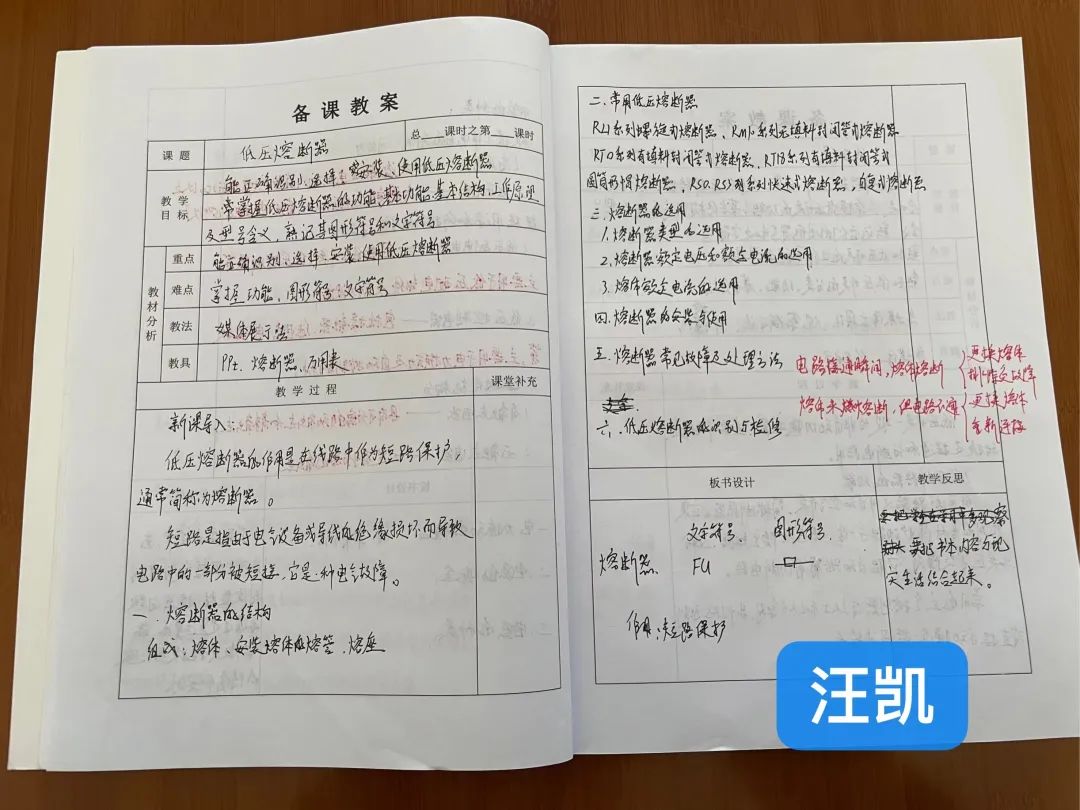 备课教案
课题
低压熔断器
总 课时之第 课时
教学目标
能正确识别、选择、安装、使用低压熔断器
掌握低压熔断器的功能、基本功能、基本结构、工作原理
及型号含义,熟记其图形符号和文字符号
教材分析
重点
能正确识别、选择、安装、使用低压熔断器
难点
掌握功能、图形符号、文字符号
教法
媒体展示法
教具
PPt、熔断器、万用表
教学过程
课堂补充
新课导入:
低压熔断器的作用是在线路中作为短路保护,
通常简称为熔断器。
短路是指由于电气设备或导线的绝缘损坏而导致
电路中的一部分被短接,它是一种电气故障。
一、熔断器的结构
组成:熔体、安装熔体的熔管、熔座
二、常用低压熔断器
RL1系列螺旋式熔断器、RM10系列无填料封闭管式熔断器
RT0系列有填料封闭管式熔断器、RT18系列有填料封闭管式
圆筒形帽熔断器、RS0、RS3系列快速式熔断器,自复式熔断器
三、熔断器的选用
1.熔断器类型的选用
2.熔断器额定电压和额定电流的选用
3.熔体额定电流的选用
四、熔断器的安装与使用
五、熔断器常见故障及处理方法
电路接通瞬间,熔体熔断
更换熔体
排除故障
熔体未熔断,但电路不通
更换熔体
重新连接
六、低压熔断器的识别与检修
板书设计
教学反思
文字符号 图形符号
熔断器 FU
作用:短路保护
要把书本内容与现
实生活结合起来。
汪凯